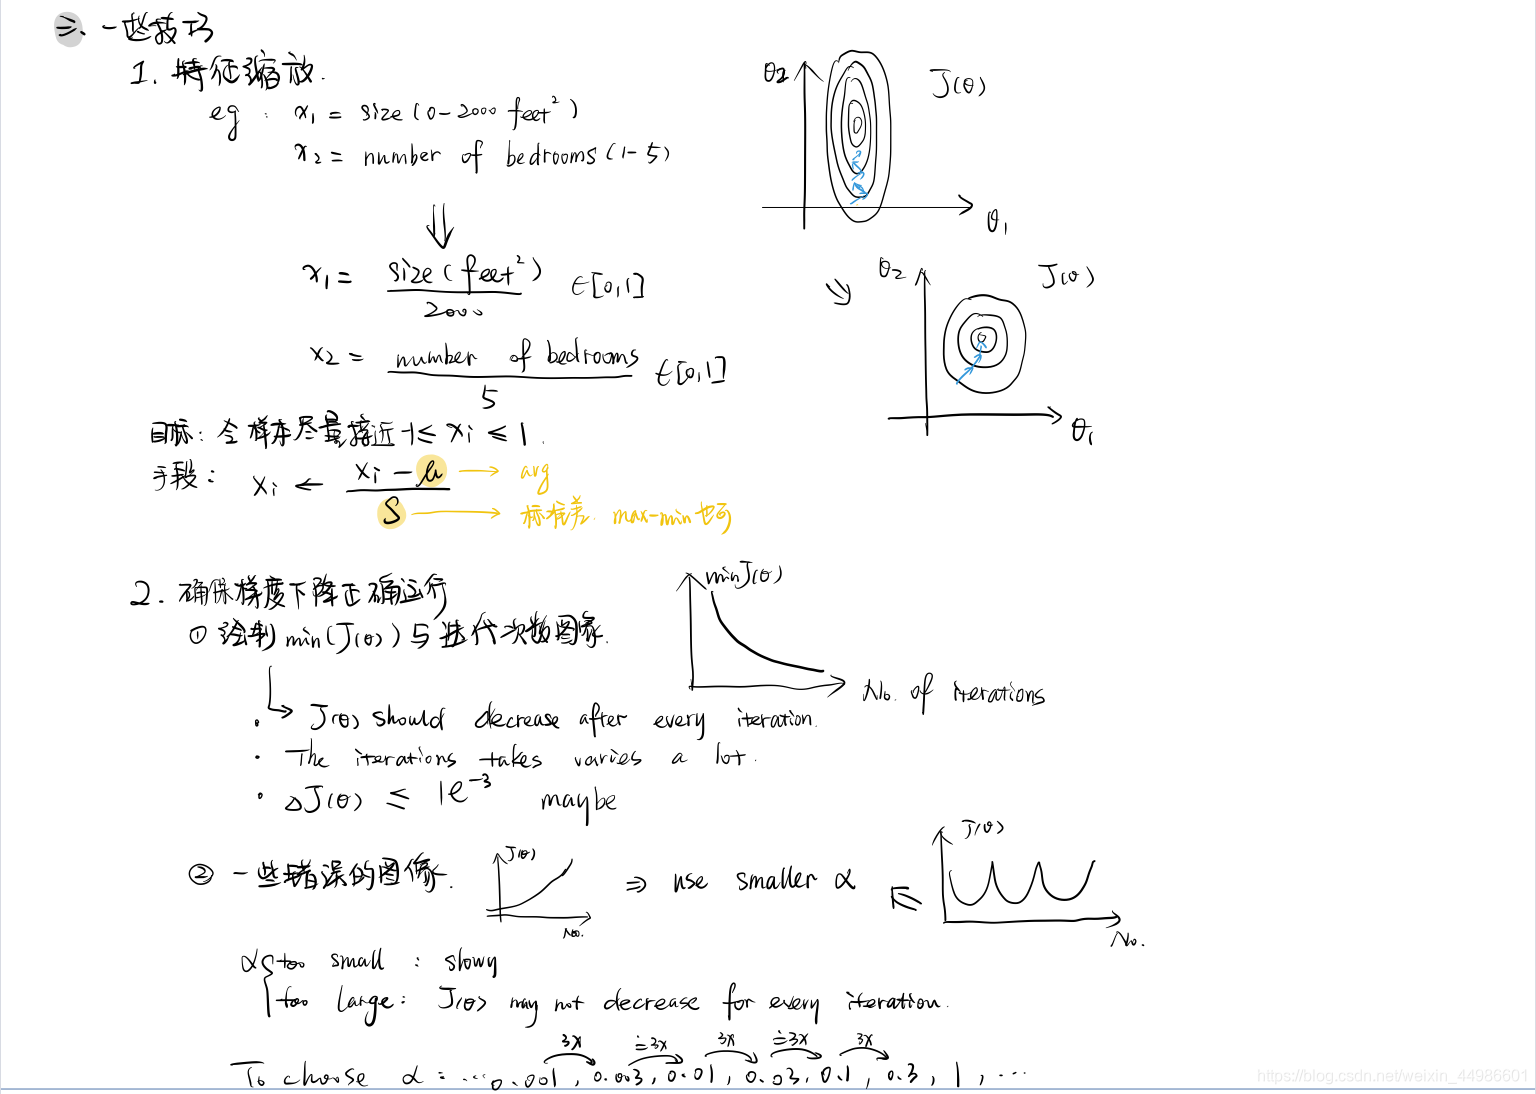 三、一些技巧
1. 特征缩放.
eg : x₁ = size (0-2000 feet²)
x₂ = number of bedrooms (1-5)
⇓
x₁ = size (feet²) / 2000 ∈[0,1]
x₂ = number of bedrooms / 5 ∈[0,1]
θ₂ J(θ)
θ₁
⇒ θ₂ J(θ)
θ₁
目标: 令样本尽量接近 -1 ≤ xᵢ ≤ 1.
手段: xᵢ ← (xᵢ - μ) / S
μ → avg
S → 标准差. max-min也可
2. 确保梯度下降正确运行
① 绘制 min(J(θ)) 与迭代次数图像.
minJ(θ)
No. of iterations
· → J(θ) should decrease after every iteration.
· The iterations takes varies a lot.
· ΔJ(θ) ≤ 1e⁻³ maybe
② 一些错误的图像. J(θ) No. ⇒ use smaller α ⇐ J(θ) No.
α { too small : slowy
too large : J(θ) may not decrease for every iteration.
3x ≐3x 3x ≐3x 3x
To choose α : ... 0.001, 0.003, 0.01, 0.03, 0.1, 0.3, 1, ...
https://blog.csdn.net/weixin_44986601